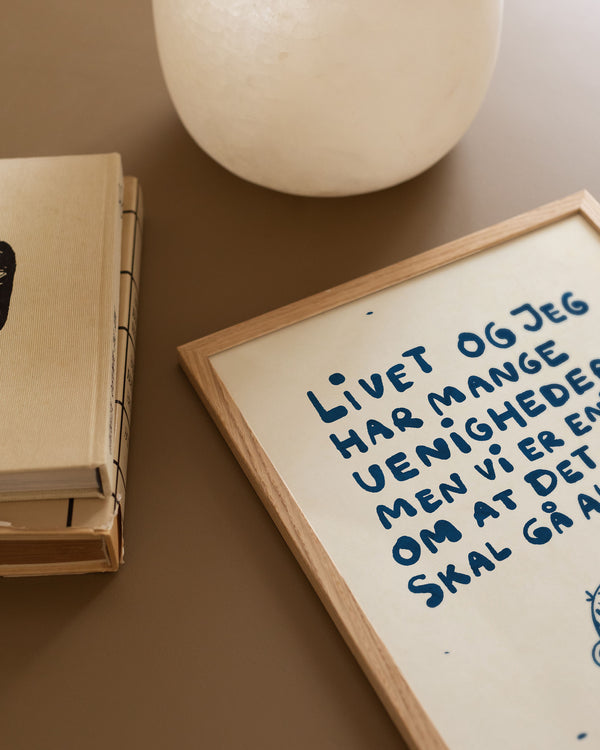 LIVET OG JEG
HAR MANGE
UENIGHEDER
MEN VI ER EN
OM AT DET
SKAL GÅ